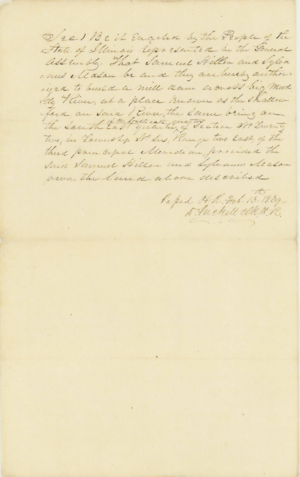 Sec 1 Be it Enacted by the People of the
State of Illinois represented in the General
Assembly, That Samuel Hilton and Sylva
nus Mason be and they are hereby autho
rized to build a mill dam across big Mud
dy River, at a place known as the shallow
ford on said River, the same being on
of the north east quarter
the South East quarter, of Section No Twenty
two, in Township No Six, Range two East of the
third principal Meridian, provided the
said Samuel Hilton and Sylvanus Mason
own the land above described
Passed H.R. Feb. 13th 1839.